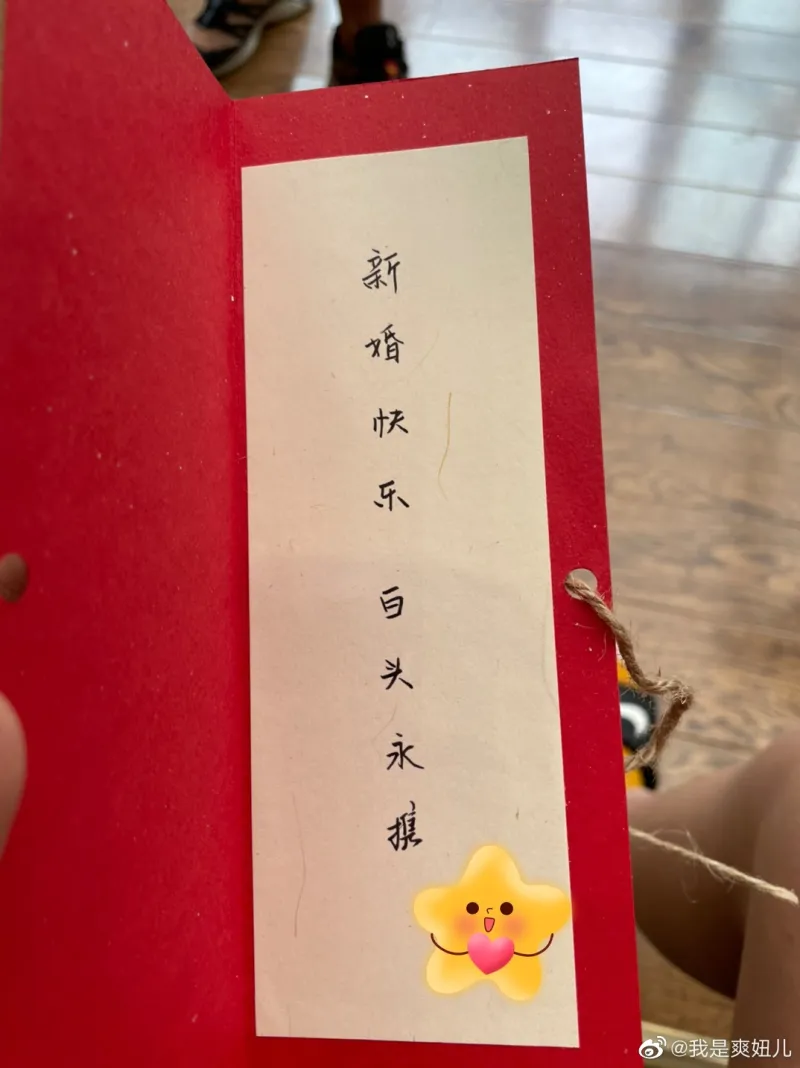 新婚快乐 百头永携
@我是爽妞儿